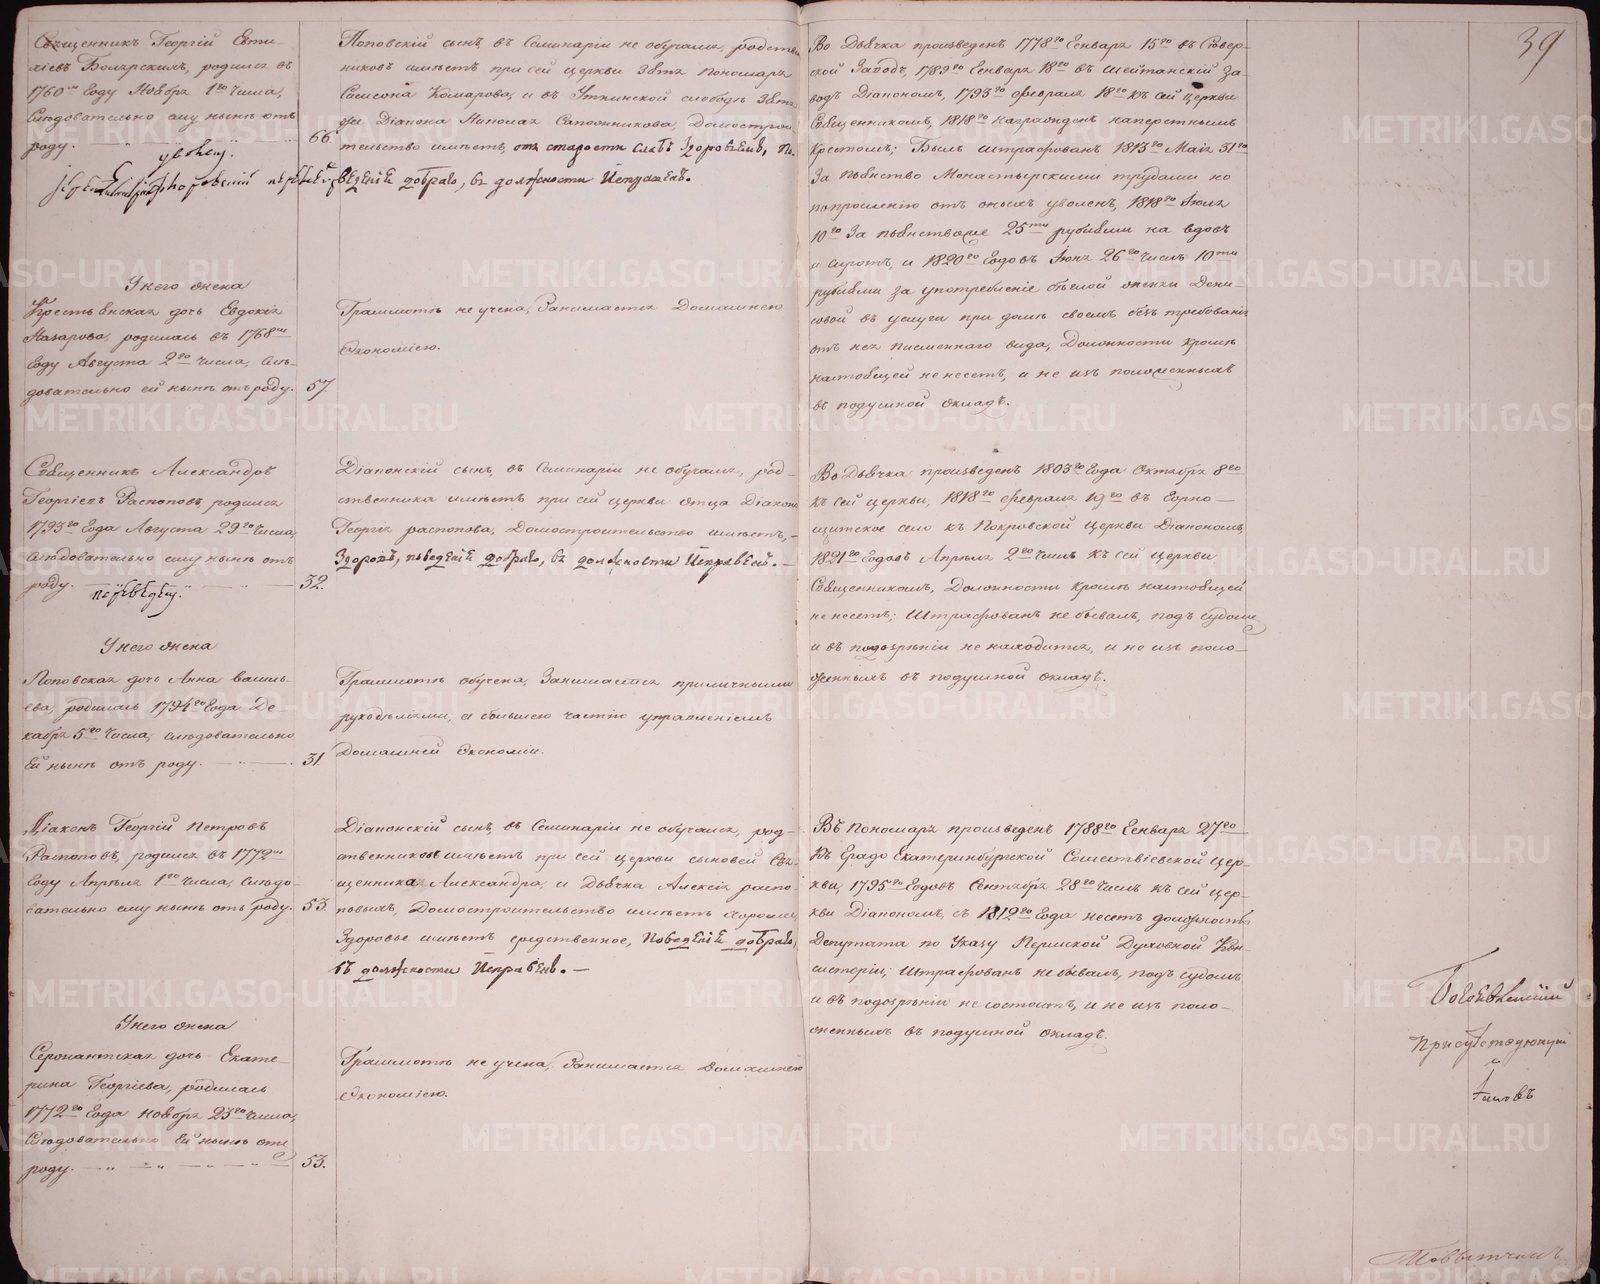 39
Священникъ Георгій Евти-
хіевъ Боярскихъ, родился въ
1760мъ Году Ноября 1го Числа,
Слѣдовательно ему нынѣ отъ
роду. 66
уволенъ.
Поповскій сынъ, въ Семинаріи не обучался, родстве
нниковъ имѣетъ при сей церкви Зятя Пономаря
Самсона Комарова, и въ Уткинской слободѣ Зятя
же Діакона Сапожникова, Домострои
тельство имѣетъ, отъ старости слабъ здоровьемъ, по-
веденія добраго, въ должности Исправенъ.
Во Дьячка произведенъ 1778го Генваря 15го въ Сѣвер-
ской Заводъ, 1789го Генваря 18го въ Шейтанскій За-
водъ Діакономъ, 1793го Февраля 18го къ сей церкви
Священникомъ, 1818го награжденъ наперстнымъ
Крестомъ; Былъ штрафованъ 1813го Маія 31го
За пьянство Монастырскими трудами но
по прошенію отъ оныхъ уволенъ, 1818го Іюля
10го За пьянство же 25ти рублями на вдовъ
и сиротъ, и 1820го Годовъ Іюня 26го Числъ 10ти
рублями за употребленіе бѣглой женки Дени-
совой въ услуги при домѣ своемъ безъ требованія
отъ нея писменнаго вида, Должности кромѣ
настоящей не несетъ, и не изъ положенныхъ
въ подушной окладъ.
У него жена
Крестьянская дочь Евдокія
Назарова, родилась въ 1768мъ
Году Августа 2го Числа, слѣ-
довательно ей нынѣ отъ роду. 57.
Грамматѣ не учена, Занимается Домашнею
Экономіею.
Священникъ Александръ
Георгіевъ Распоповъ родился
1793го Года Августа 29го Числа,
Слѣдовательно ему нынѣ отъ
роду. 32.
переведенъ.
Діаконскій сынъ, въ Семинаріи не обучался, род-
ственника имѣетъ при сей церкви отца Діакона
Георгія распопова, Домостроительство имѣетъ,
Здоровъ, поведенія добраго, въ должности Исправенъ.
Во Дьячка произведенъ 1803го Года Октября 8го
къ сей церкви, 1818го Февраля 19го въ Горно-
щитское село къ Покровской церкви Діакономъ,
1821го Годовъ Апрѣля 2го Числъ къ сей церкви
Священникомъ, Должности кромѣ настоящей
не несетъ; Штрафованъ не бывалъ, подъ судомъ
и въ подозрѣніи не находится, и не изъ поло-
женныхъ въ подушной окладъ.
У него жена
Поповская дочь Анна Василь-
ева, родилась 1794го Года Де-
кабря 5го Числа, слѣдовательно
Ей нынѣ отъ роду. 31.
Грамматѣ обучена, Занимается приличными
рукодѣліями, а большею частію управленіемъ
Домашней Экономіи.
Діаконъ Георгій Петровъ
Распоповъ, родился въ 1772мъ
Году Апрѣля 1го Числа, Слѣдо-
вательно ему нынѣ отъ роду. 53.
Діаконскій сынъ, въ Семинаріи не обучался, род-
ственниковъ имѣетъ при сей церкви сыновей Свя-
щенника Александра, и Дьячка Алексія распо-
повыхъ, Домостроительство имѣетъ хорошее,
Здоровье имѣетъ средственное, Поведенія добраго,
въ должности Исправенъ.
Въ Пономаря произведенъ 1788го Генваря 27го
Къ Градо Екатеринбургской Сошествіевской цер-
кви, 1795го Годовъ Сентября 28го Числъ къ сей цер-
кви Діакономъ, съ 1812го Года несетъ должность
Депутата по Указу Пермской Духовной Кон-
систоріи; Штрафованъ не бывалъ, подъ судомъ
и въ подозрѣніи не состоитъ, и не изъ поло-
женныхъ въ подушной окладъ.
У него жена
Сержантская дочь Екате-
рина Георгіева, родилась
1772го Года Ноября 23го Числа,
Слѣдовательно Ей нынѣ отъ
роду. 53.
Грамматѣ не учена, Занимается Домашнею
Экономіею.
METRIKI.GASO-URAL.RU